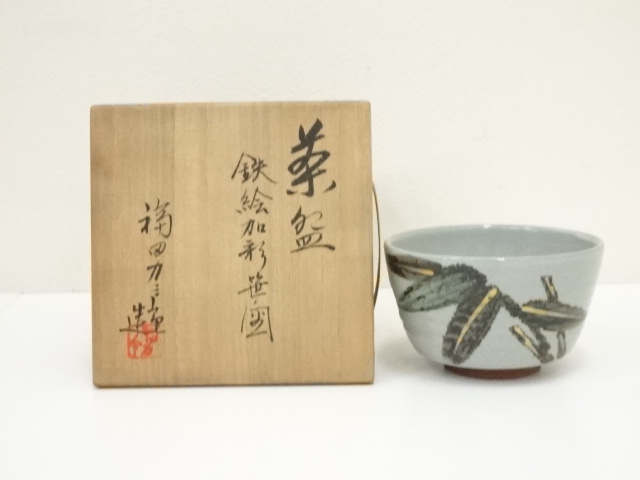 茶盌
鉄絵加彩笹図
福田力三郎
造